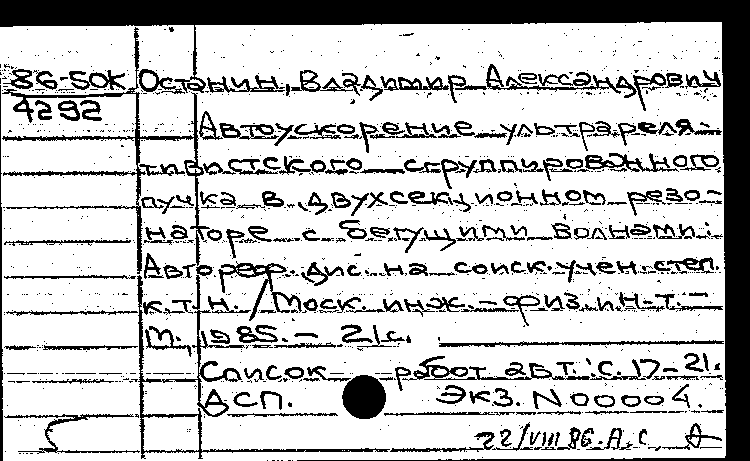 86-50К Останин, Владимир Александрович
4292
Автоускорение ультрареля-
тивистского сгруппированного
пучка в двухсекционном резо-
наторе с бегущими волнами:
Автореф. дис. на соиск. учен. степ.
к.т.н. / Моск. инж.-физ. ин-т. -
М., 1985. - 21с.
Список работ авт.: С. 17-21.
ДСП. Экз. N 00004.
22/VIII 86. А.С.